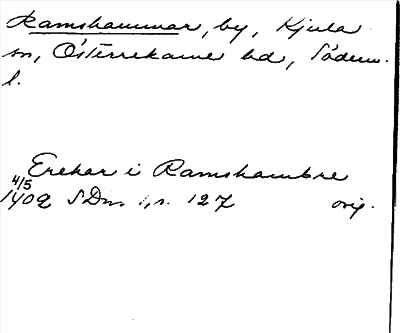 Ramshammar, by, Kjula
sn, Österrekarne hd, Söderm.
l.
Erekar i Ramshambre
4/5
1402 SDns 1, s. 127 orig.